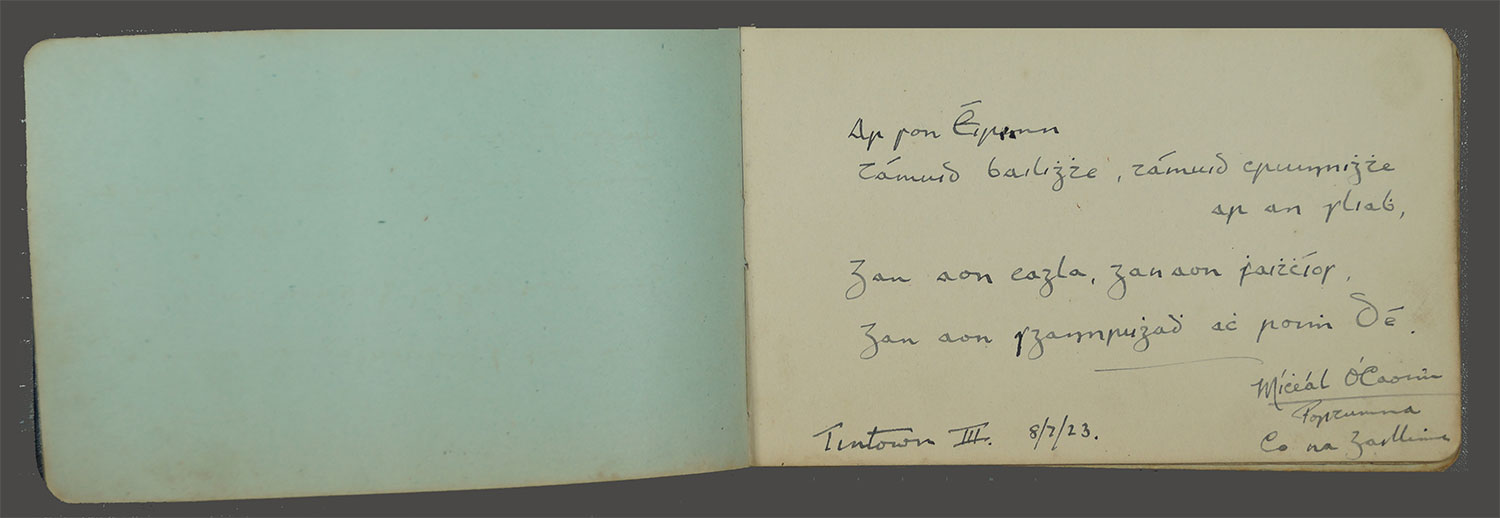 Ar son Éireann
Támuid bailiġṫe, támuid cruinniġṫe
ar an sliaḃ,
Gan aon eagla, gan aon ḟaitċíos,
Gan aon sgannruġaḋ aċ roiṁ Dé.
Míċeál Ó'Caoiṁ
Portumna
Co na Gaillime
Tintown III. 8/7/23.